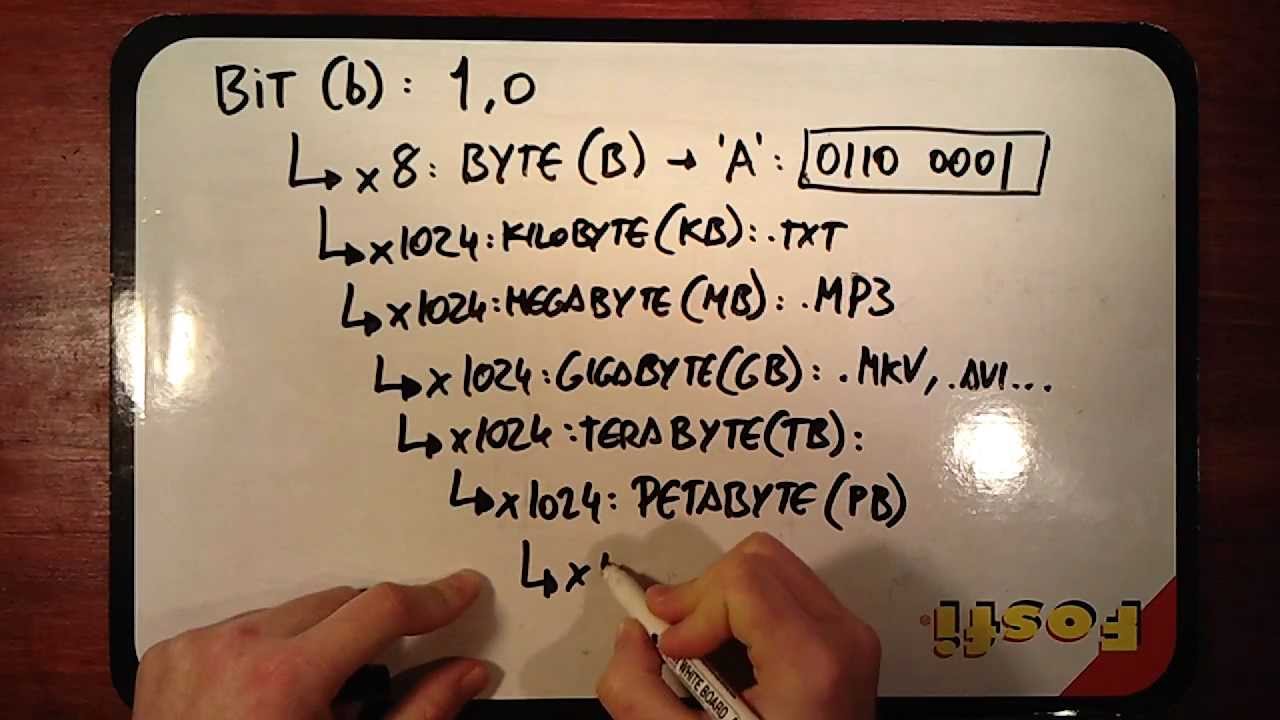 BiT (b): 1,0
↳ x 8: BYTE (B) → 'A': 0110 0001
↳ x1024: KILOBYTE (KB): .TXT
↳ x1024: MEGABYTE (MB): .MP3
↳ x 1024: GIGABYTE (GB): .MKV, .AVI...
↳ x1024: TERABYTE (TB):
↳ x1024: PETABYTE (PB)
↳ x
WHITE BOARD
Fosfi®